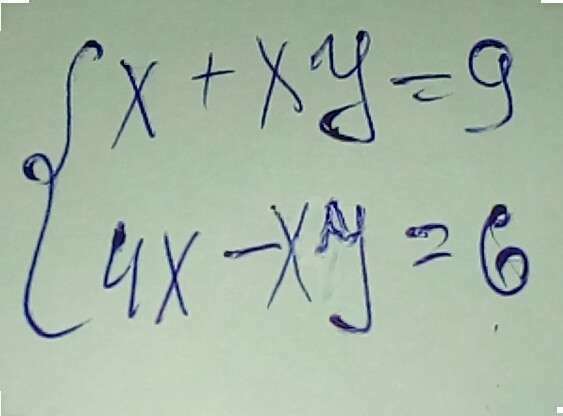 x + xy = 9
4x - xy = 6